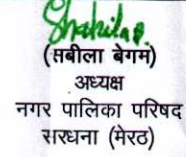 Shakila B.
(सबीला बेगम)
अध्यक्ष
नगर पालिका परिषद
सरधना (मेरठ)